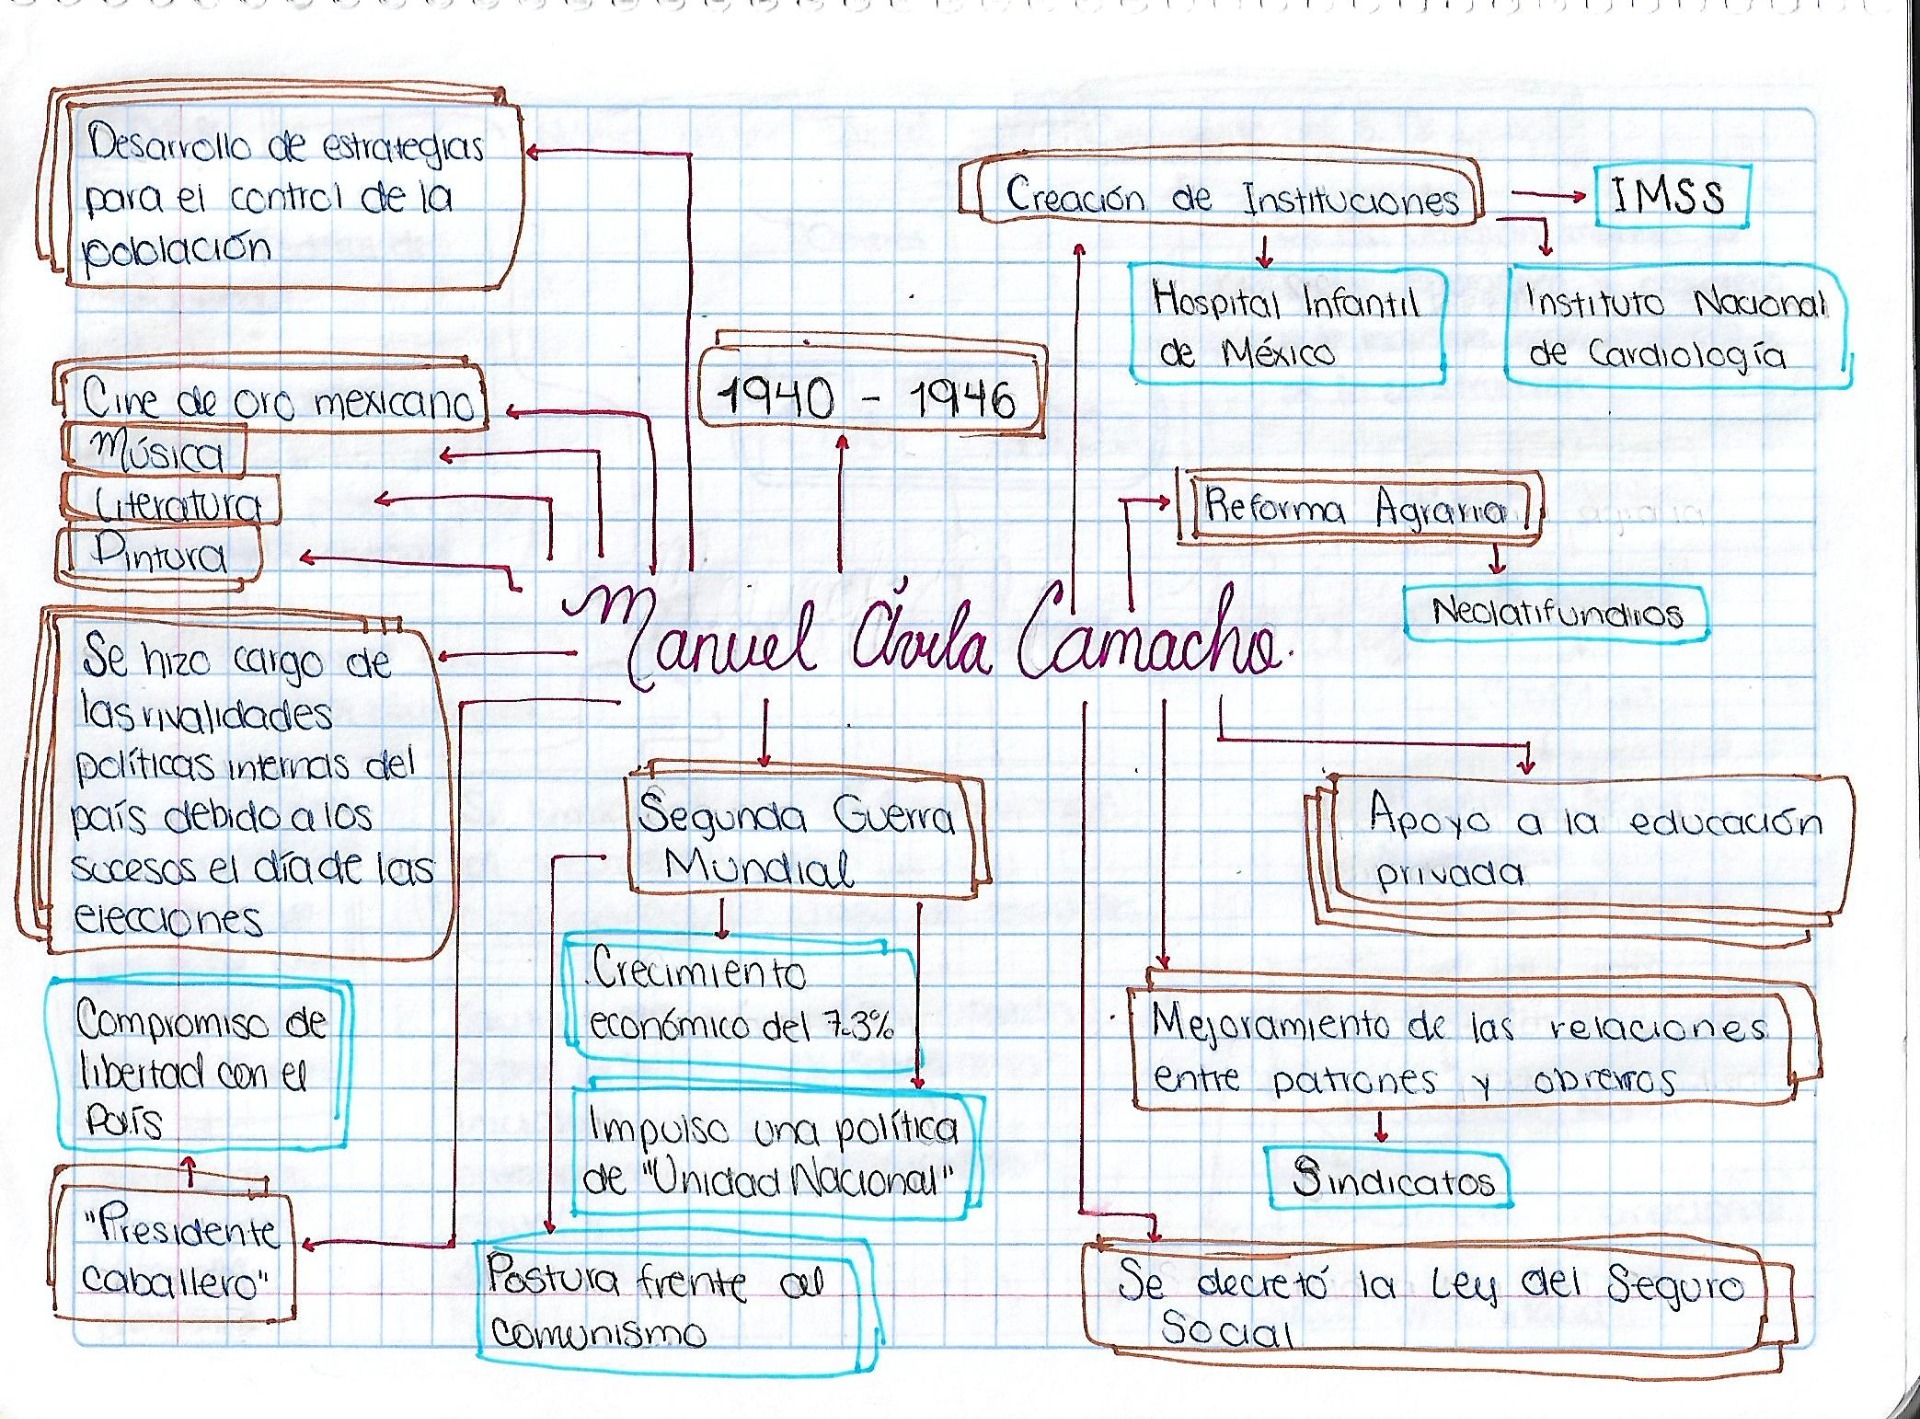 Desarrollo de estrategias
para el control de la
población
Creación de Instituciones
IMSS
Hospital Infantil
de México
Instituto Nacional
de Cardiología
1940 - 1946
Cine de oro mexicano
Música
Literatura
Pintura
Reforma Agraria
Neolatifundios
Manuel Ávila Camacho.
Se hizo cargo de
las rivalidades
políticas internas del
país debido a los
sucesos el día de las
elecciones
Segunda Guerra
Mundial
Apoyo a la educación
privada
Crecimiento
económico del 7.3%
Compromiso de
libertad con el
país
Mejoramiento de las relaciones
entre patrones y obreros
Impulso una política
de "Unidad Nacional"
Sindicatos
"Presidente
caballero"
Postura frente al
comunismo
Se decretó la Ley del Seguro
Social